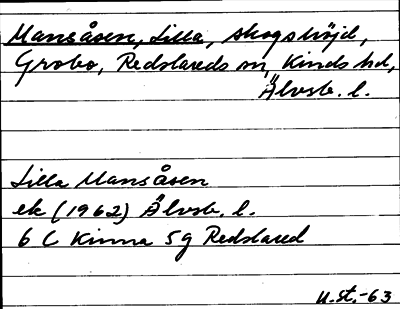 Mansåsen, Lilla, skogshöjd,
Grobo, Redslareds sn, Kinds hd,
Älvsb. l.
Lilla Mansåsen
ek (1962) Älvsb. l.
6 C Kinna 5g Redslared
U.st.-63